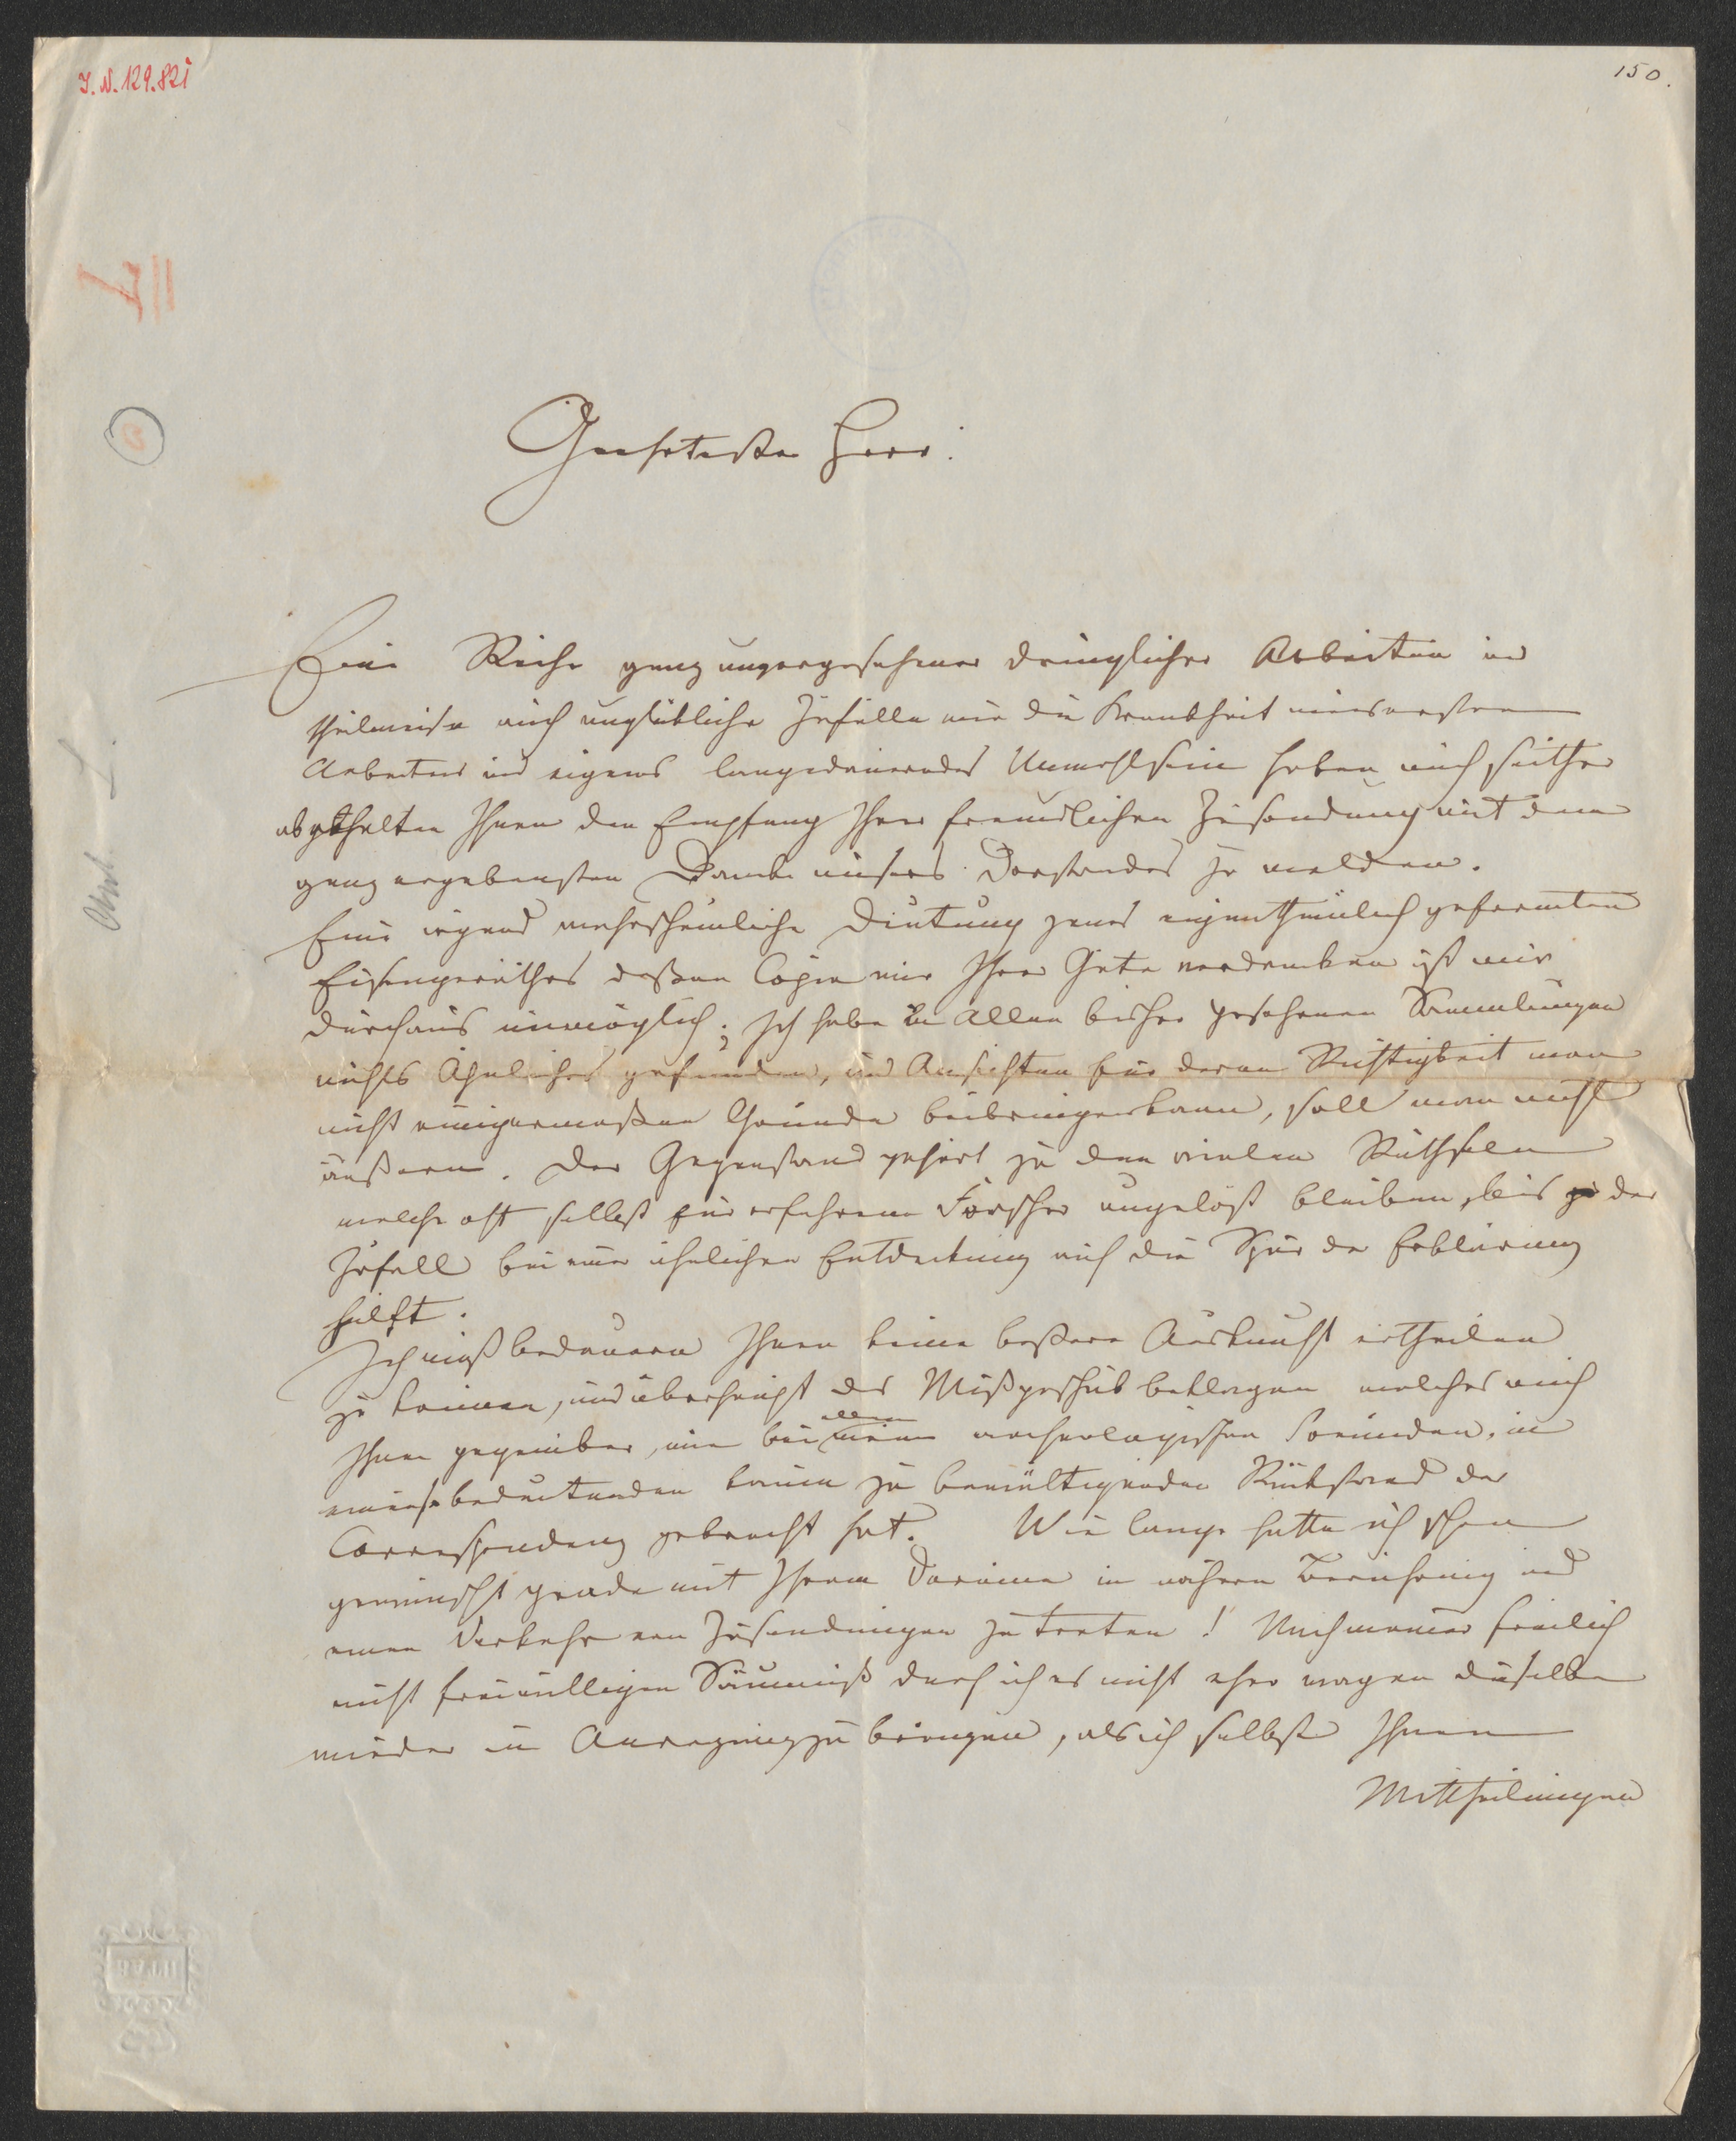 J. N. 129.821
150.
Geehrtester Herr!
Eine Reihe ganz unvorgesehener dringlicher Arbeiten und
theilweise auch unglückliche Zufälle wie die Krankheit unseres ersten
Arbeiters und eigenes langedauerndes Unwohlsein haben mich seither
abgehalten Ihnen den Empfang Ihrer freundlichen Zusendung mit dem
ganz ergebensten Danke unseres Vorstandes zu melden.
Eine irgend wahrscheinliche Deutung jenes eigenthümlich geformten
Eisengeräthes deßen Copie wir Ihrer Güte verdanken ist mir
durchaus unmöglich; Ich habe in allen bisher gesehenen Sammlungen
nichts Ähnliches gefunden, und Ansichten für deren Richtigkeit man
nicht einigermaßen Gründe beibringen kann, soll man nicht
äußern. Der Gegenstand gehört zu den vielen Räthseln
welche oft selbst für erfahrene Forscher ungelöst bleiben, bis der
Zufall bei einer ähnlichen Entdeckung auf die Spur der Erklärung
hilft.
Ich muß bedauern Ihnen keine beßere Auskunft ertheilen
zu können, und überhaupt das Mißgeschick beklagen welches mich
Ihnen gegenüber, wie bei allen meinen archaeologischen Freunden, in
einen so bedeutenden kaum zu bewältigenden Rückstand der
Correspondenz gebracht hat. Wie lange hatte ich schon
gewünscht grade mit Ihrem Vereine in nähere Berührung und
einen Verkehr von Zusendungen zu treten! Nach meiner freilich
nicht freiwilligen Säumniß darf ich es nicht eher wagen dieselbe
wieder in Anregung zu bringen, als ich selbst Ihnen
Mittheilungen